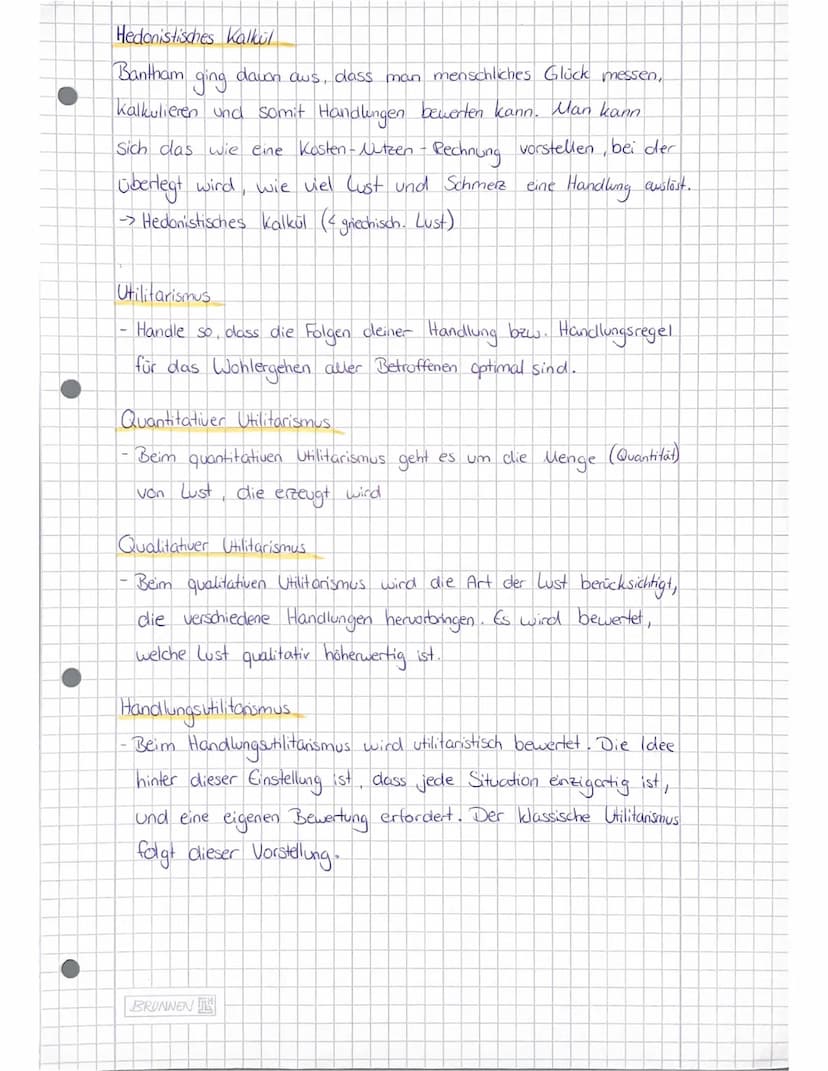 Hedonistisches Kalkül
Bantham ging davon aus, dass man menschliches Glück messen,
kalkulieren und somit Handlungen bewerten kann. Man kann
sich das wie eine Kosten-Nutzen-Rechnung vorstellen, bei der
überlegt wird, wie viel Lust und Schmerz eine Handlung auslöst.
-> Hedonistisches Kalkül (< griechisch. Lust)
Utilitarismus
- Handle so, dass die Folgen deiner Handlung bzw. Handlungsregel
für das Wohlergehen aller Betroffenen optimal sind.
Quantitativer Utilitarismus
- Beim quantitativen Utilitarismus geht es um die Menge (Quantität)
von Lust, die erzeugt wird
Qualitativer Utilitarismus
- Beim qualitativen Utilitarismus wird die Art der Lust berücksichtigt,
die verschiedene Handlungen hervorbringen. Es wird bewertet,
welche Lust qualitativ höherwertig ist.
Handlungsutilitarismus
- Beim Handlungsutilitarismus wird utilitaristisch bewertet. Die Idee
hinter dieser Einstellung ist, dass jede Situation einzigartig ist,
und eine eigenen Bewertung erfordert. Der klassische Utilitarismus
folgt dieser Vorstellung.
BRUNNEN